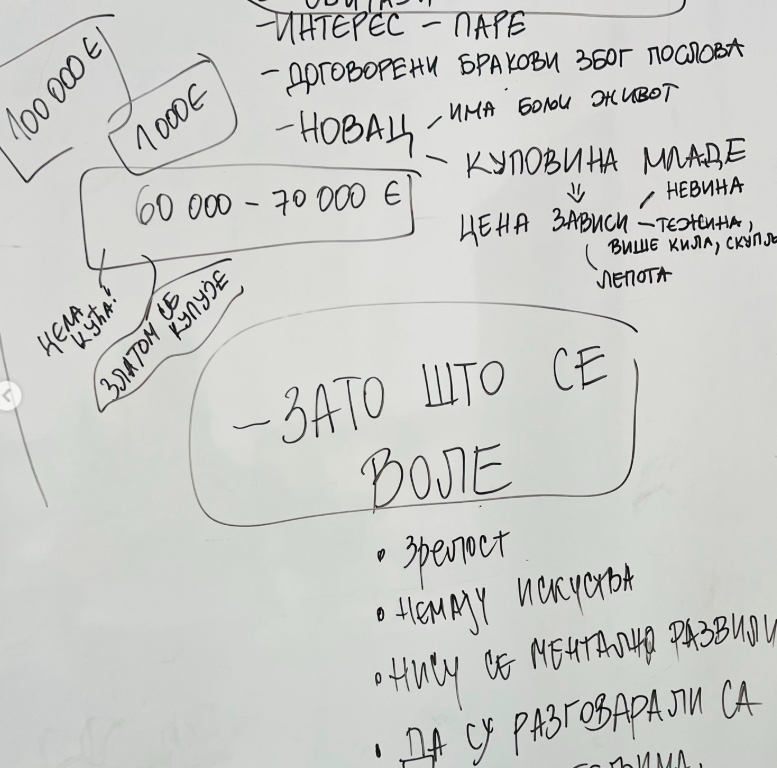 - ИНТЕРЕС - ПАРЕ
- ДОГОВОРЕНИ БРАКОВИ ЗБОГ ПОСЛОВА
- НОВАЦ - ИМА БОЉИ ЖИВОТ
- КУПОВИНА МЛАДЕ
⇓
ЦЕНА ЗАВИСИ
НЕВИНА
- ТЕЖИНА,
ВИШЕ КИЛА,
ЛЕПОТА
100 000 €
1 000 €
60 000 - 70 000 €
ЦЕЛА
КУЋА!
ЗЛАТОМ СЕ
КУПУЈЕ
- ЗАТО ШТО СЕ
ВОЛЕ
• Зрелост
• НЕМАЈУ ИСКУСТВА
• НИСУ СЕ МЕНТАЛНО РАЗВИЛИ
• ДА СУ РАЗГОВАРАЛИ СА